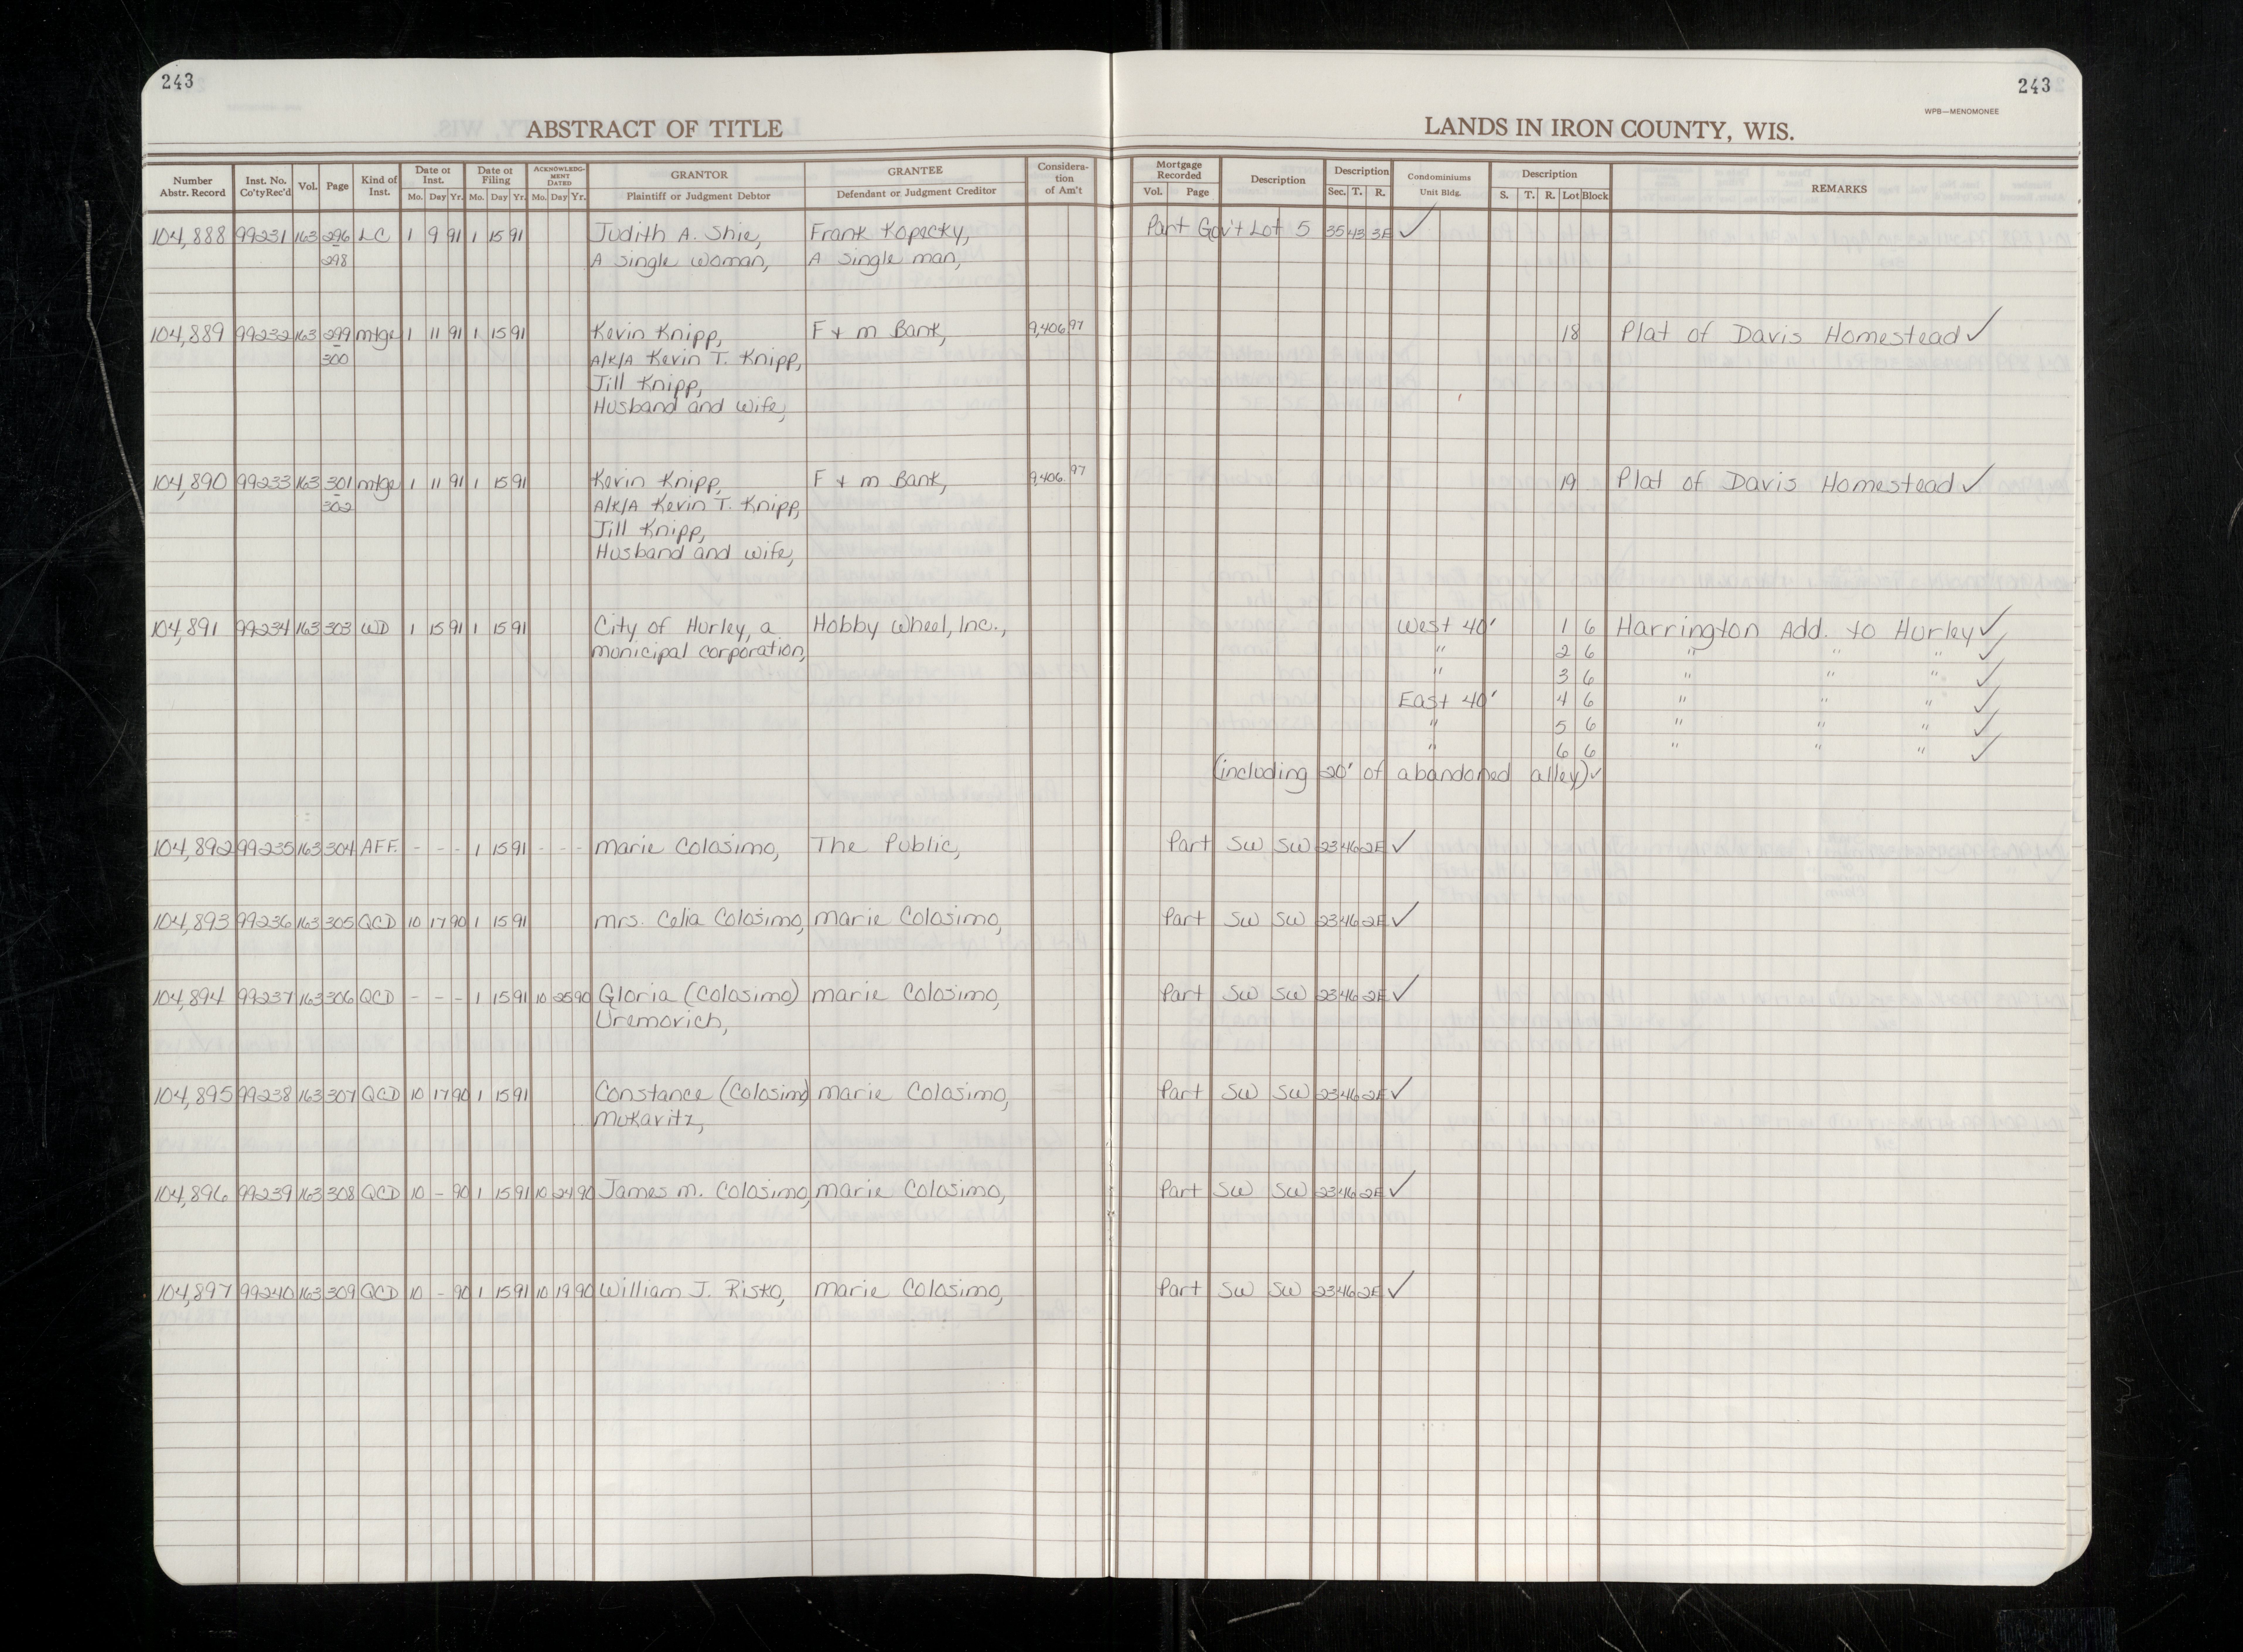 243
243
WPB—MENOMONEE
ABSTRACT OF TITLE
LANDS IN IRON COUNTY, WIS.
Number Abstr. Record | Inst. No. Co'ty Rec'd | Vol. | Page | Kind of Inst. | Date of Inst. Mo. Day Yr. | Date of Filing Mo. Day Yr. | ACKNOWLEDGMENT DATED Mo. Day Yr. | GRANTOR Plaintiff or Judgment Debtor | GRANTEE Defendant or Judgment Creditor | Consideration of Am't | Mortgage Recorded Vol. Page | Description | Description Sec. T. R. | Condominiums Unit Bldg. | Description S. T. R. Lot Block | REMARKS
104,888 99231 163 296 LC 1 9 91 1 15 91 Judith A. Shie, Frank Kopecky, Part Gov't Lot 5 35 43 3E ✓
- 298 A single woman, A single man,
104,889 99232 163 299 mtge 1 11 91 1 15 91 Kevin Knipp, F + m Bank, 9,406.97 18 Plat of Davis Homestead ✓
- 300 A/K/A Kevin T. Knipp,
Jill Knipp,
Husband and wife,
104,890 99233 163 301 mtge 1 11 91 1 15 91 Kevin Knipp, F + m Bank, 9,406.97 19 Plat of Davis Homestead ✓
- 302 A/K/A Kevin T. Knipp,
Jill Knipp,
Husband and wife,
104,891 99234 163 303 WD 1 15 91 1 15 91 City of Hurley, a Hobby Wheel, Inc., West 40' 1 6 Harrington Add. to Hurley ✓
municipal corporation, " 2 6 " " " ✓
" 3 6 " " " ✓
East 40' 4 6 " " " ✓
" 5 6 " " " ✓
" 6 6 " " " ✓
(including 20' of abandoned alley) ✓
104,892 99235 163 304 AFF. - - - 1 15 91 - - - marie Colosimo, The Public, Part SW SW 23 46 2E ✓
104,893 99236 163 305 QCD 10 17 90 1 15 91 mrs. Celia Colosimo, marie Colosimo, Part SW SW 23 46 2E ✓
104,894 99237 163 306 QCD - - - 1 15 91 10 25 90 Gloria (Colosimo) marie Colosimo, Part SW SW 23 46 2E ✓
Uremovich,
104,895 99238 163 307 QCD 10 17 90 1 15 91 Constance (Colosimo) marie Colosimo, Part SW SW 23 46 2E ✓
Mukavitz,
104,896 99239 163 308 QCD 10 - 90 1 15 91 10 24 90 James m. Colosimo, marie Colosimo, Part SW SW 23 46 2E ✓
104,897 99240 163 309 QCD 10 - 90 1 15 91 10 19 90 William J. Risko, marie Colosimo, Part SW SW 23 46 2E ✓